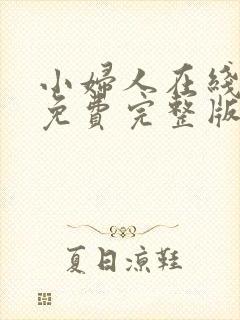 小婦人在綫
免費完整版
夏日涼鞋